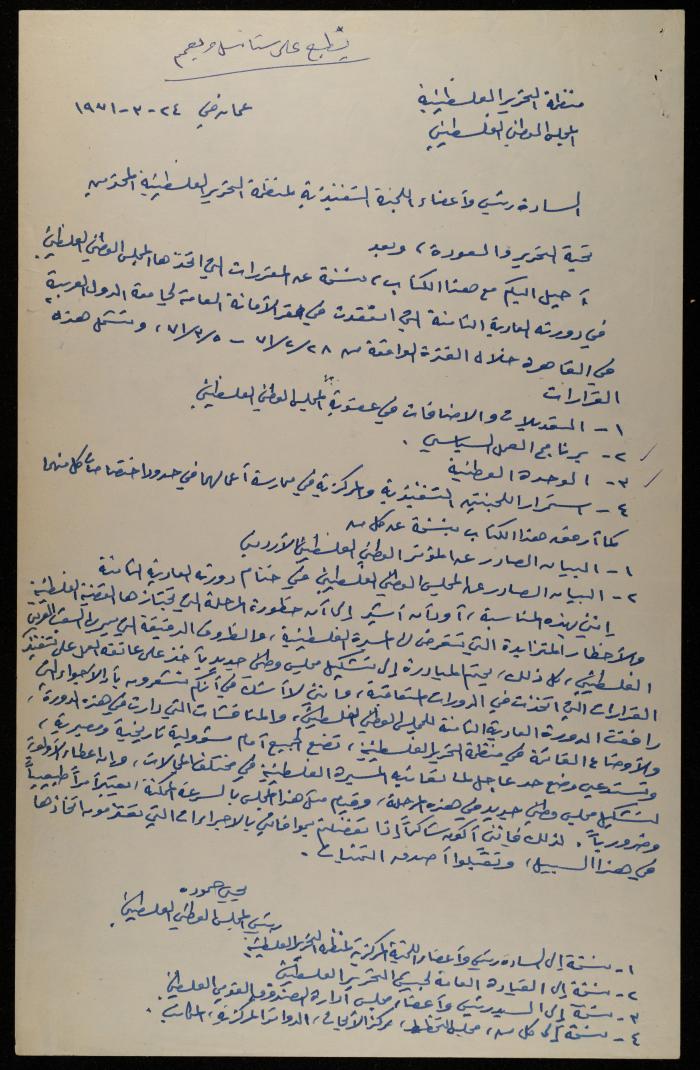 يطبع على ستانسل ويعمم
منظمة التحرير الفلسطينية
المجلس الوطني الفلسطيني
عمان في ٢٤-٣-١٩٧١
السادة رئيس وأعضاء اللجنة التنفيذية لمنظمة التحرير الفلسطينية المحترمين
تحية التحرير والعودة، وبعد
أحيل اليكم مع هذا الكتاب، نسخة عن المقررات التي اتخذها المجلس الوطني الفلسطيني
في دورته العادية الثامنة التي انعقدت في مقر الأمانة العامة لجامعة الدول العربية
في القاهرة خلال الفترة الواقعة من ٧١/٢/٢٨ - ٧١/٣/٥، وتشتمل هذه
القرارات
١- التعديلات والاضافات في عضوية المجلس الوطني الفلسطيني
٢- برنامج العمل السياسي.
٣- الوحدة الوطنية
٤- استمرار اللجنتين التنفيذية والمركزية في ممارسة أعمالهما في حدود اختصاصات كل منهما
كما أرفق هذا الكتاب بنسخة عن كل من
١- البيان الصادر عن المؤتمر الوطني الفلسطيني الأردني
٢- البيان الصادر عن المجلس الوطني الفلسطيني في ختام دورته العادية الثامنة
إنني بهذه المناسبة، أود أن أشير إلى أن خطورة المرحلة التي تجتازها القضية الفلسطينية
والأخطار المتزايدة التي تتعرض لها المسيرة الفلسطينية، والظروف الدقيقة التي يمر بها الشعب العربي
الفلسطيني، كل ذلك، يحتم المبادرة إلى تشكيل مجلس وطني جديد يأخذ على عاتقه العمل على تنفيذ
القرارات التي اتخذت في الدورات المتعاقبة، وانني لا أشك في أنكم تشعرون بأن الاجواء التي
رافقت الدورة العادية الثامنة للمجلس الوطني الفلسطيني، والمناقشات التي دارت في هذه الدورة،
والأوضاع القائمة في منظمة التحرير الفلسطينية، تضع الجميع أمام مسؤولية تاريخية ومصيرية،
وتستدعي وضع حد عاجل لما تعانيه المسيرة الفلسطينية في مختلف المجالات، وان اعطاء الأولوية
لتشكيل مجلس وطني جديد في هذه المرحلة، وقيام مثل هذا المجلس بالسرعة الممكنة يعتبر أمراً طبيعياً
وضرورياً. لذلك فانني أكون شاكراً إذا تفضلتم بموافاتي بالاجراءات التي تعتزمون اتخاذها
في هذا السبيل، وتقبلوا أصدق التمنيات.
يحيى حموده
رئيس المجلس الوطني الفلسطيني
١- نسخة إلى السادة رئيس وأعضاء اللجنة المركزية لمنظمة التحرير الفلسطينية
٢- نسخة إلى القيادة العامة لجيش التحرير الفلسطيني
٣- نسخة إلى السيد رئيس وأعضاء مجلس ادارة الصندوق القومي الفلسطيني
٤- نسخة إلى كل من مجلس التخطيط، مركز الأبحاث، الدوائر المركزية، المكاتب.